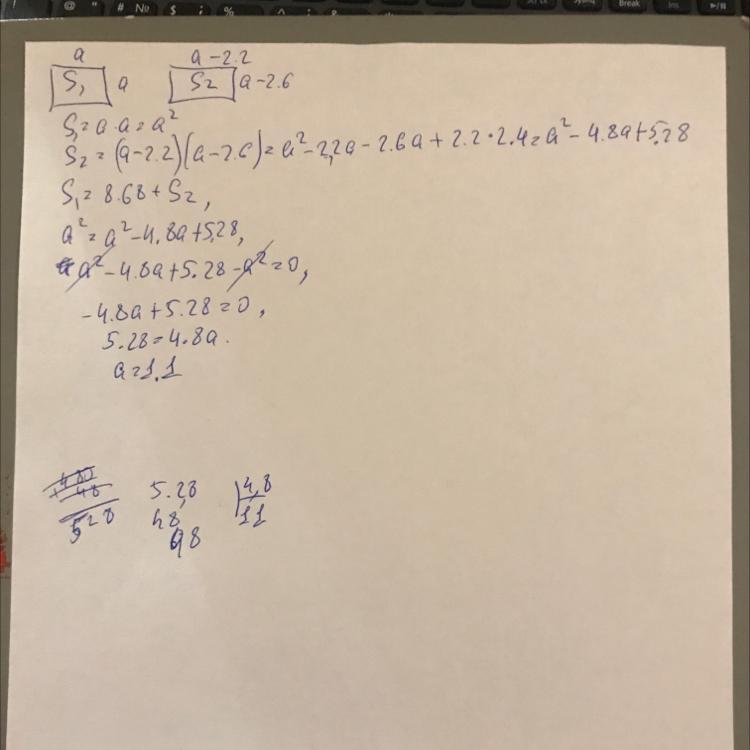 a a-2.2
S₁ a S₂ a-2.6
S₁=a·a=a²
S₂=(a-2.2)(a-2.6)=a²-2,2a-2.6a+2.2·2.4=a²-4.8a+5.28
S₁=8.68+S₂,
a²=a²-4.8a+5.28,
a²-4.8a+5.28-a²=0,
-4.8a+5.28=0,
5.28=4.8a.
a=1.1
480
+48
528
5.28 4,8
48 11
48